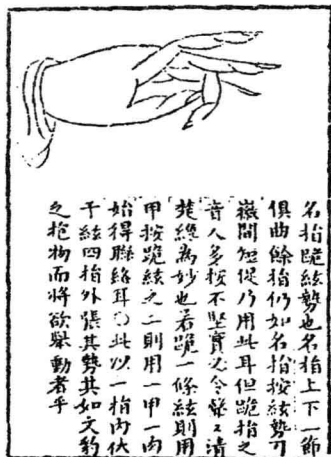 名指跪絃勢也名指上下一節
俱曲餘指仍如名指按絃勢可
徽間短促乃用此耳但跪指之
音人多按不堅實必令聲々清
楚纔為妙也若跪一條絃則用
甲按跪絃之二則用一甲一肉
始得聯絡耳○此以一指內伏
于絃四指外張其勢其如文豹
之抱物而將欲舉動者乎